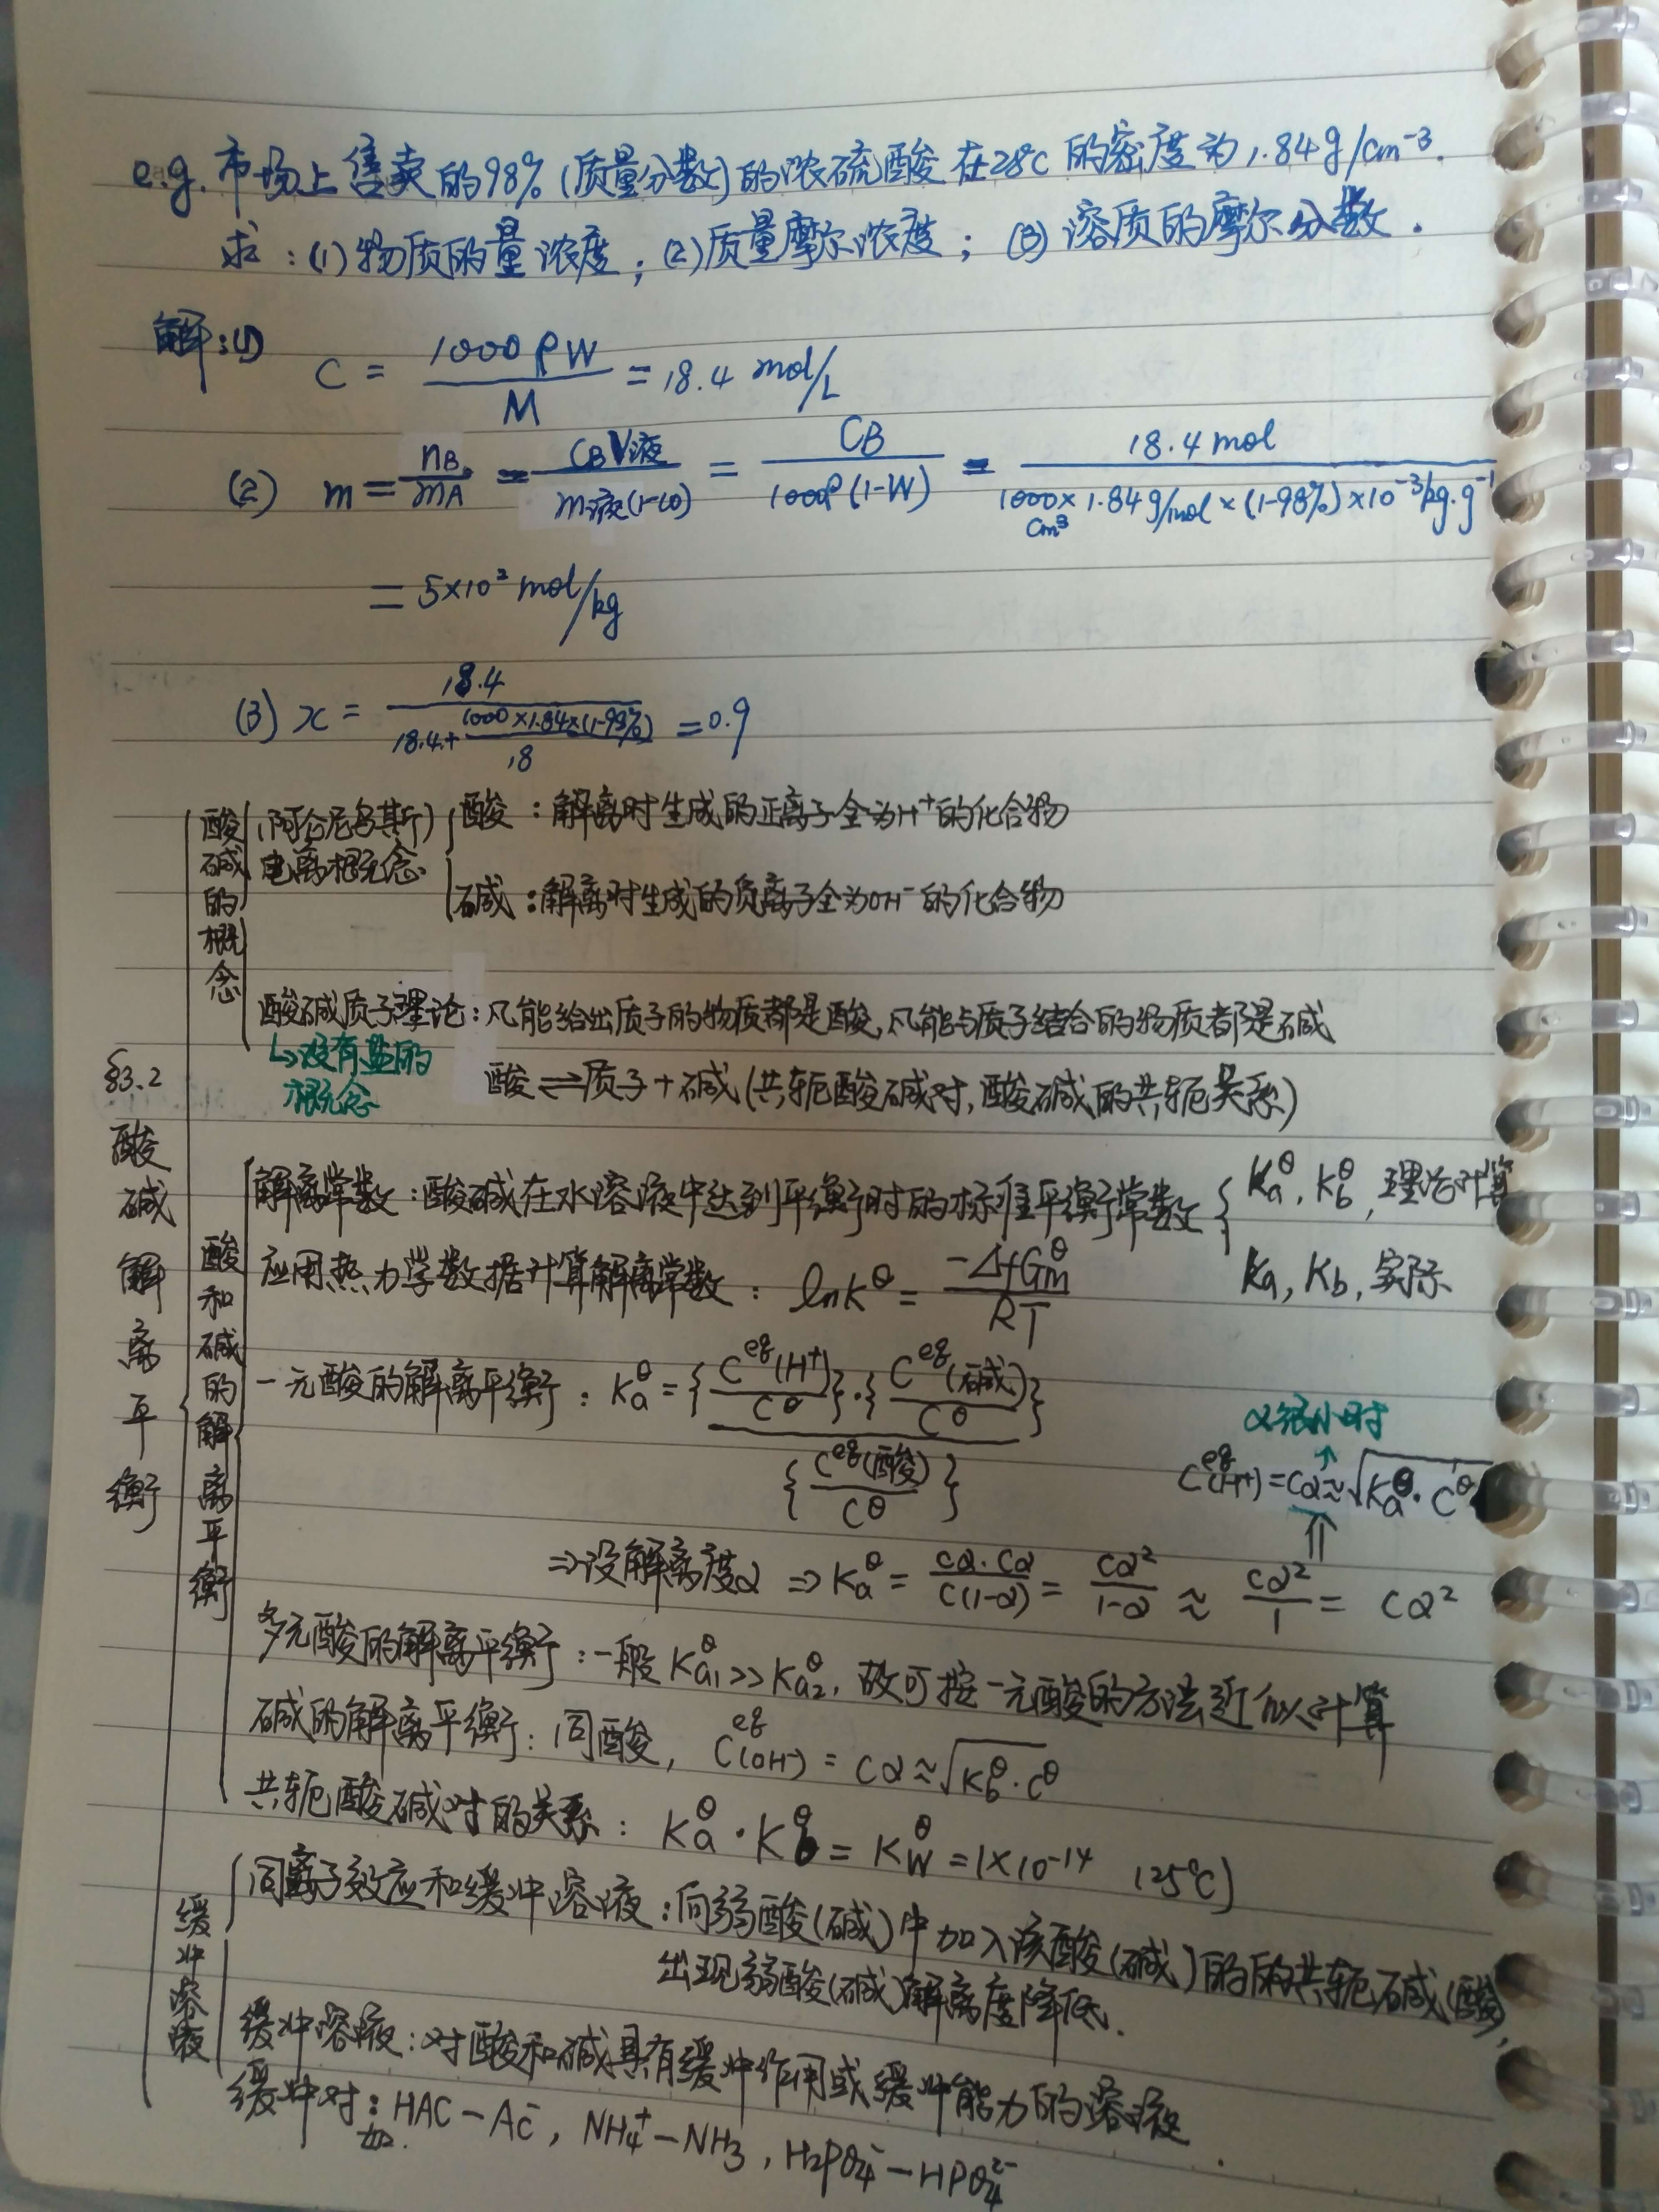 e.g. 市场上售卖的98% (质量分数)的浓硫酸在28℃ 的密度为1.84g/cm⁻³.
求：(1) 物质的量浓度；(2)质量摩尔浓度；(3) 溶质的摩尔分数.
解：(1) C = 1000ρW / M = 18.4 mol/L
(2) m = nB / mA = CBV液 / m液(1-ω) = CB / 1000ρ(1-W) = 18.4 mol / 1000cm³ × 1.84g/mol × (1-98%) × 10⁻³kg·g⁻¹
= 5×10² mol/kg
(3) x = 18.4 / (18.4 + 1000×1.84×(1-98%) / 18) = 0.9
§3.2 酸碱解离平衡
酸碱的概念
(阿伦尼乌斯) 电离概念
酸：解离时生成的正离子全为H⁺的化合物
碱：解离时生成的负离子全为OH⁻的化合物
酸碱质子理论：凡能给出质子的物质都是酸,凡能与质子结合的物质都是碱
↳没有盐的概念
酸⇌质子+碱(共轭酸碱对,酸碱的共轭关系)
酸和碱的解离平衡
解离常数：酸碱在水溶液中达到平衡时的标准平衡常数 { Ka^θ, Kb^θ, 理论计算
Ka, Kb, 实际
应用热力学数据计算解离常数：lnK^θ = -ΔfGm^θ / RT
一元酸的解离平衡：Ka^θ = {C^eq(H⁺) / C^θ}·{C^eq(碱) / C^θ} / {C^eq(酸) / C^θ}
α很小时
C^eq(H⁺) = Cα ≈ √Ka^θ·C^θ
⇒设解离度α ⇒ Ka^θ = Cα·Cα / C(1-α) = Cα² / 1-α ≈ Cα² / 1 = Cα²
多元酸的解离平衡：一般Ka1^θ >> Ka2^θ, 故可按一元酸的方法近似计算
碱的解离平衡：同酸, C^eq(OH⁻) = Cα ≈ √Kb^θ·C^θ
共轭酸碱对的关系：Ka^θ·Kb^θ = KW^θ = 1×10⁻¹⁴ (25℃)
缓冲溶液
同离子效应和缓冲溶液：向弱酸(碱)中加入该酸(碱)的的共轭碱(酸),
出现弱酸(碱)解离度降低.
缓冲溶液：对酸和碱具有缓冲作用或缓冲能力的溶液
缓冲对：如. HAC-AC⁻, NH₄⁺-NH₃, H₂PO₄⁻-HPO₄²⁻